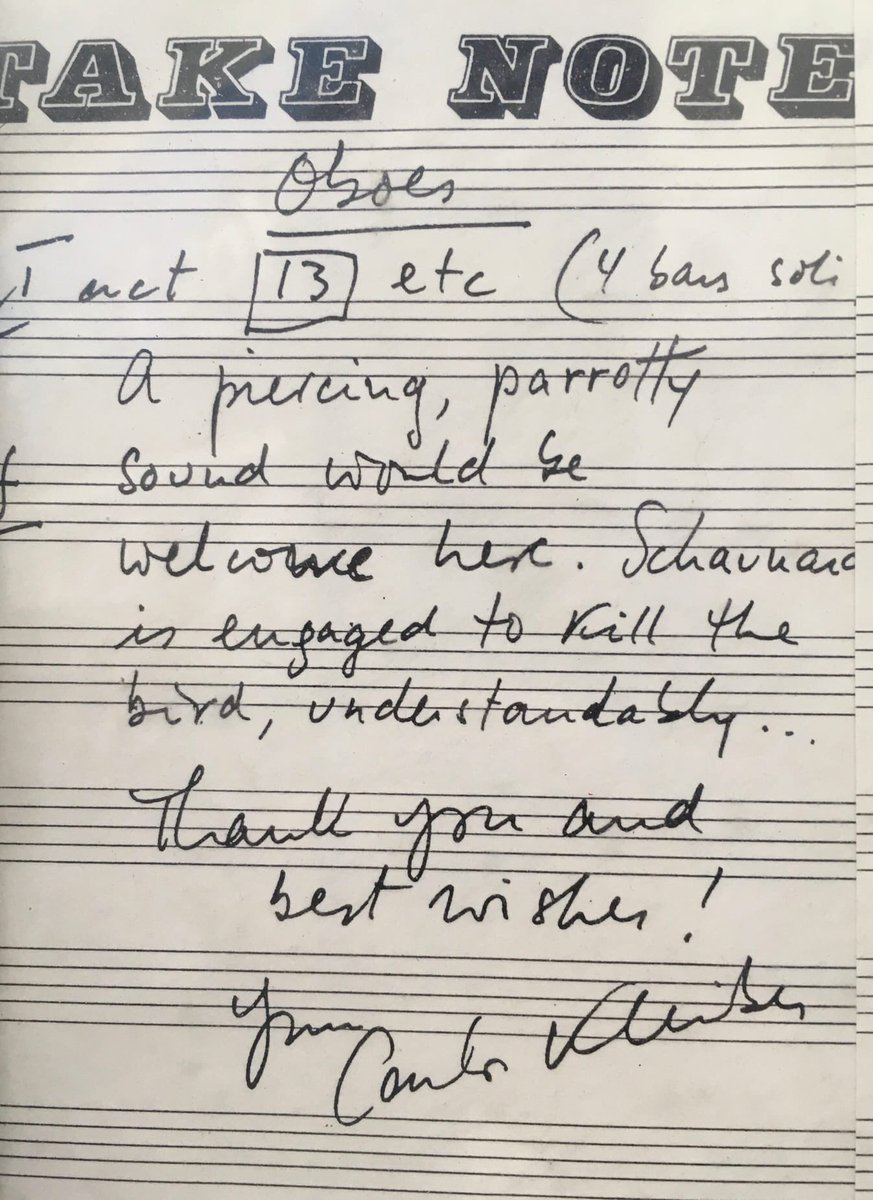 TAKE NOTE
Oboes
I act 13 etc (4 bars soli
A piercing, parrotty
f sound would be
welcome here. Schaunard
is engaged to kill the
bird, understandably...
Thank you and
best wishes!
Your Carlos Kleiber